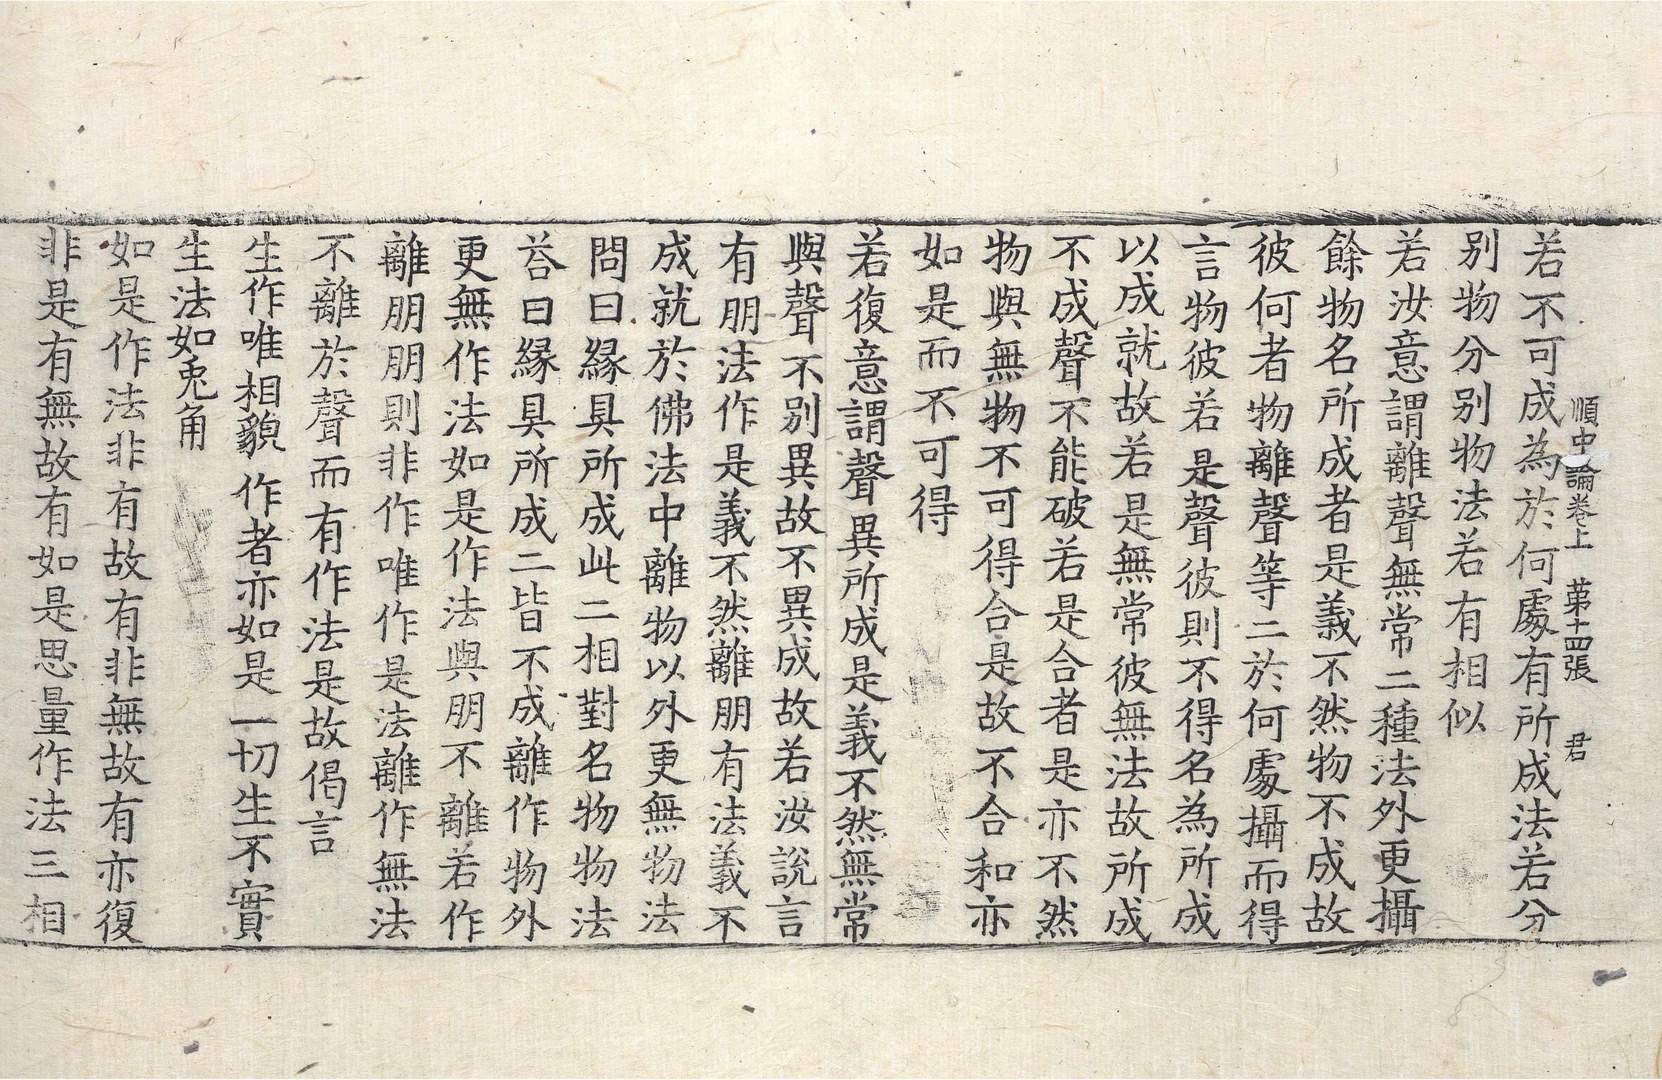 順中論卷上　苐十四張　君
若不可成為於何處有所成法若分
别物分别物法若有相似
若汝意謂離聲無常二種法外更攝
餘物名所成者是義不然物不成故
彼何者物離聲等二於何處攝而得
言物彼若是聲彼則不得名為所成
以成就故若是無常彼無法故所成
不成聲不能破若是合者是亦不然
物與無物不可得合是故不合和亦
如是而不可得
若復意謂聲異所成是義不然無常
與聲不别異故不異成故若汝說言
有朋法作是義不然離朋有法義不
成就於佛法中離物以外更無物法
問曰緣具所成此二相對名物物法
荅曰緣具所成二皆不成離作物外
更無作法如是作法與朋不離若作
離朋朋則非作唯作是法離作無法
不離於聲而有作法是故偈言
生作唯相貌　作者亦如是　一切生不實
生法如兎角
如是作法非有故有非無故有亦復
非是有無故有如是思量作法三相